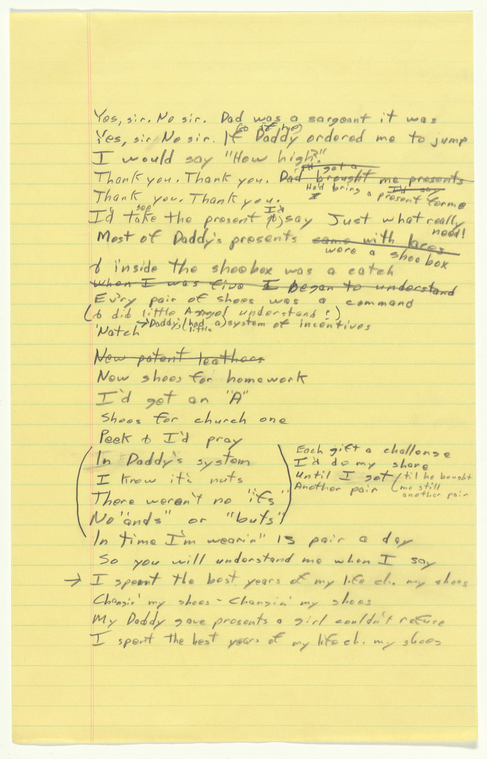 Yes, sir. No sir. Dad was a sargeant it was
Yes, sir. No sir. If Daddy ordered me to jump
I would say "How high?"
I'd got a
Thank you. Thank you. Dad brought me presents
He'd bring a present for me
I'd say
Thank you. Thank you.
I'd take the present & say Just what really need!
Most of Daddy's presents came with laces
were a shoebox
& inside the shoebox was a catch
When I was five I began to understand
Ev'ry pair of shoes was a command
(& did little Angel understand!)
'Natch → Daddy's (had a) system of incentives
little
New patent leathers
New shoes for homework
I'd get an "A"
Shoes for church one
Peek & I'd pray
(In Daddy's system
I knew it: nuts
There weren't no "ifs"
No "ands" or "buts")
Each gift a challenge
I'd do my share
Until I got (til he bought me still another pair
Another pair
In time I'm wearin' 13 pair a day
So you will understand me when I say
→ I spent the best years of my life ch. my shoes
Changin' my shoes - Changin' my shoes
My Daddy gave presents a girl couldn't refuse
I spent the best years of my life ch. my shoes